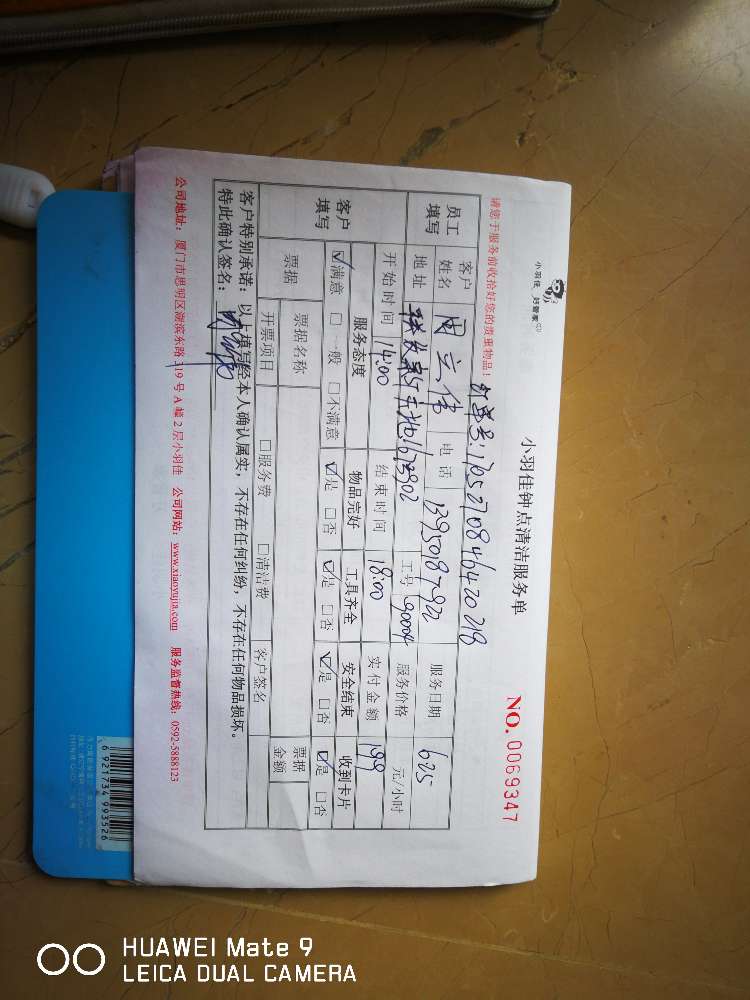 小羽佳 好管家
小羽佳钟点清洁服务单
NO. 0069347
请您于服务前收拾好您的贵重物品!
订单号:1705270846420218
员工填写
客户姓名 周立伟 电话 13950187922 服务日期 625
地址 1673902 工号 90004 服务价格 元/小时
开始时间 14:00 结束时间 18:00 实付金额 199
客户填写
服务态度 物品完好 工具齐全 安全结束 收到卡片
☑满意 □一般 □不满意 ☑是 □否 ☑是 □否 ☑是 □否 ☑是 □否
票据 票据名称 票据金额
开票项目 □服务费 □清洁费 客户签名
客户特别承诺:以上填写经本人确认属实,不存在任何纠纷,不存在任何物品损坏。
特此确认签名:
公司地址:厦门市思明区湖滨东路 319 号 A 幢 2 层小羽佳 公司网站:www.xiaoyujia.com 服务监督热线:0592-5888123
6 921734 993526
HUAWEI Mate 9
LEICA DUAL CAMERA